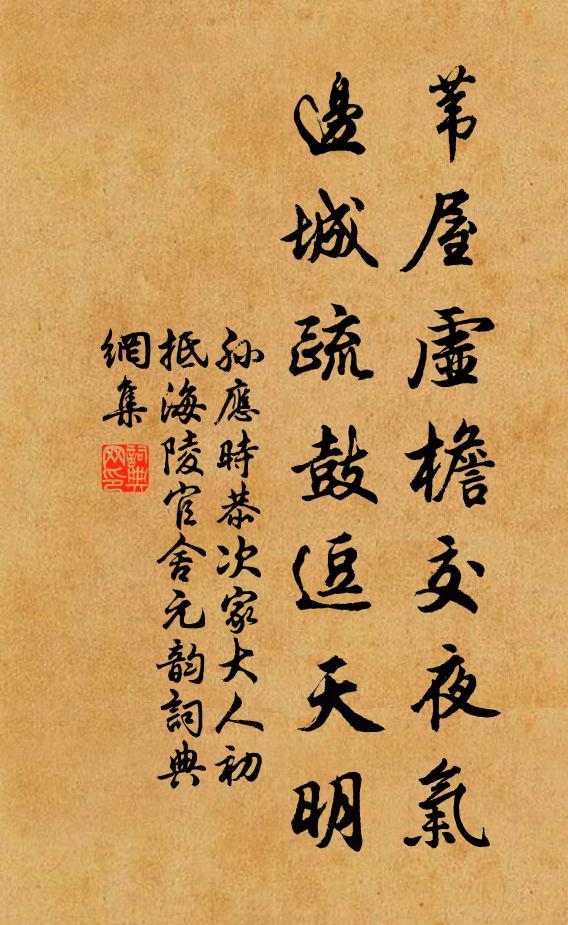 苇屋虛檐交夜氣
邊城疏鼓逗天明
孙應時恭次家大人初
抵海陵官舍元韵詞典
網集
詞典
网印